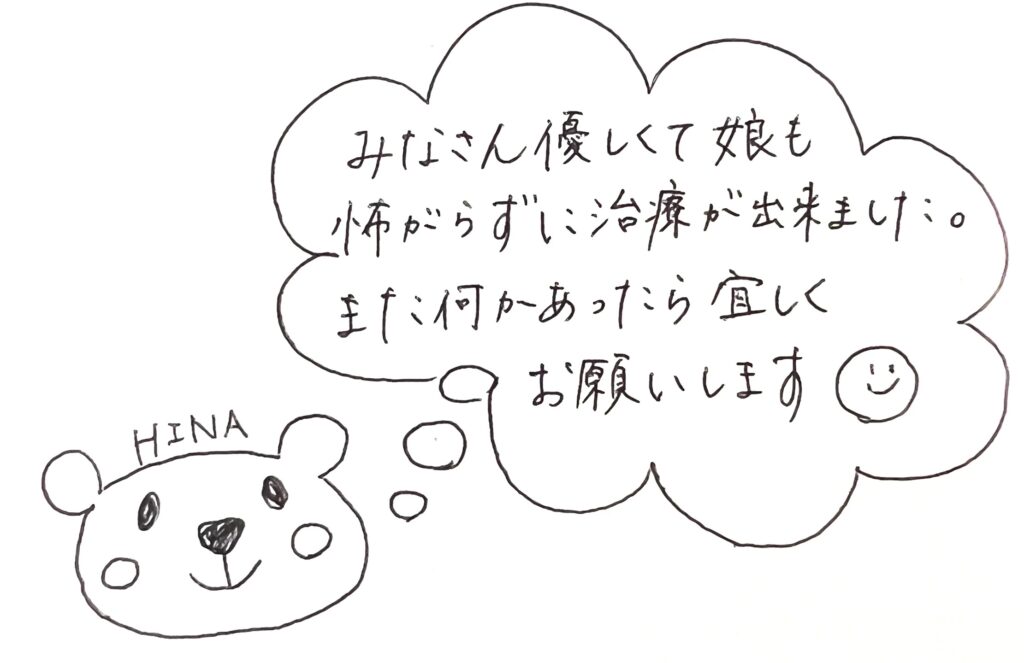 みなさん優しくて娘も
怖がらずに治療が出来ました。
また何かあったら宜しく
お願いします
HINA